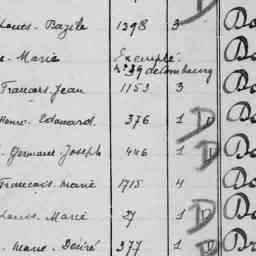 Louis - Bazile 1398 3 D Do
e - Marie Exempté Do
n° 39 de Combourg
Francois Jean 1153 3 Do
Henri - Edouard 376 1 D Do
Germain Joseph 446 1 D Do
Francois - Marie 1715 4 Do
Louis - Marie 27 1 D Do
- Marie - Désiré 377 1 D